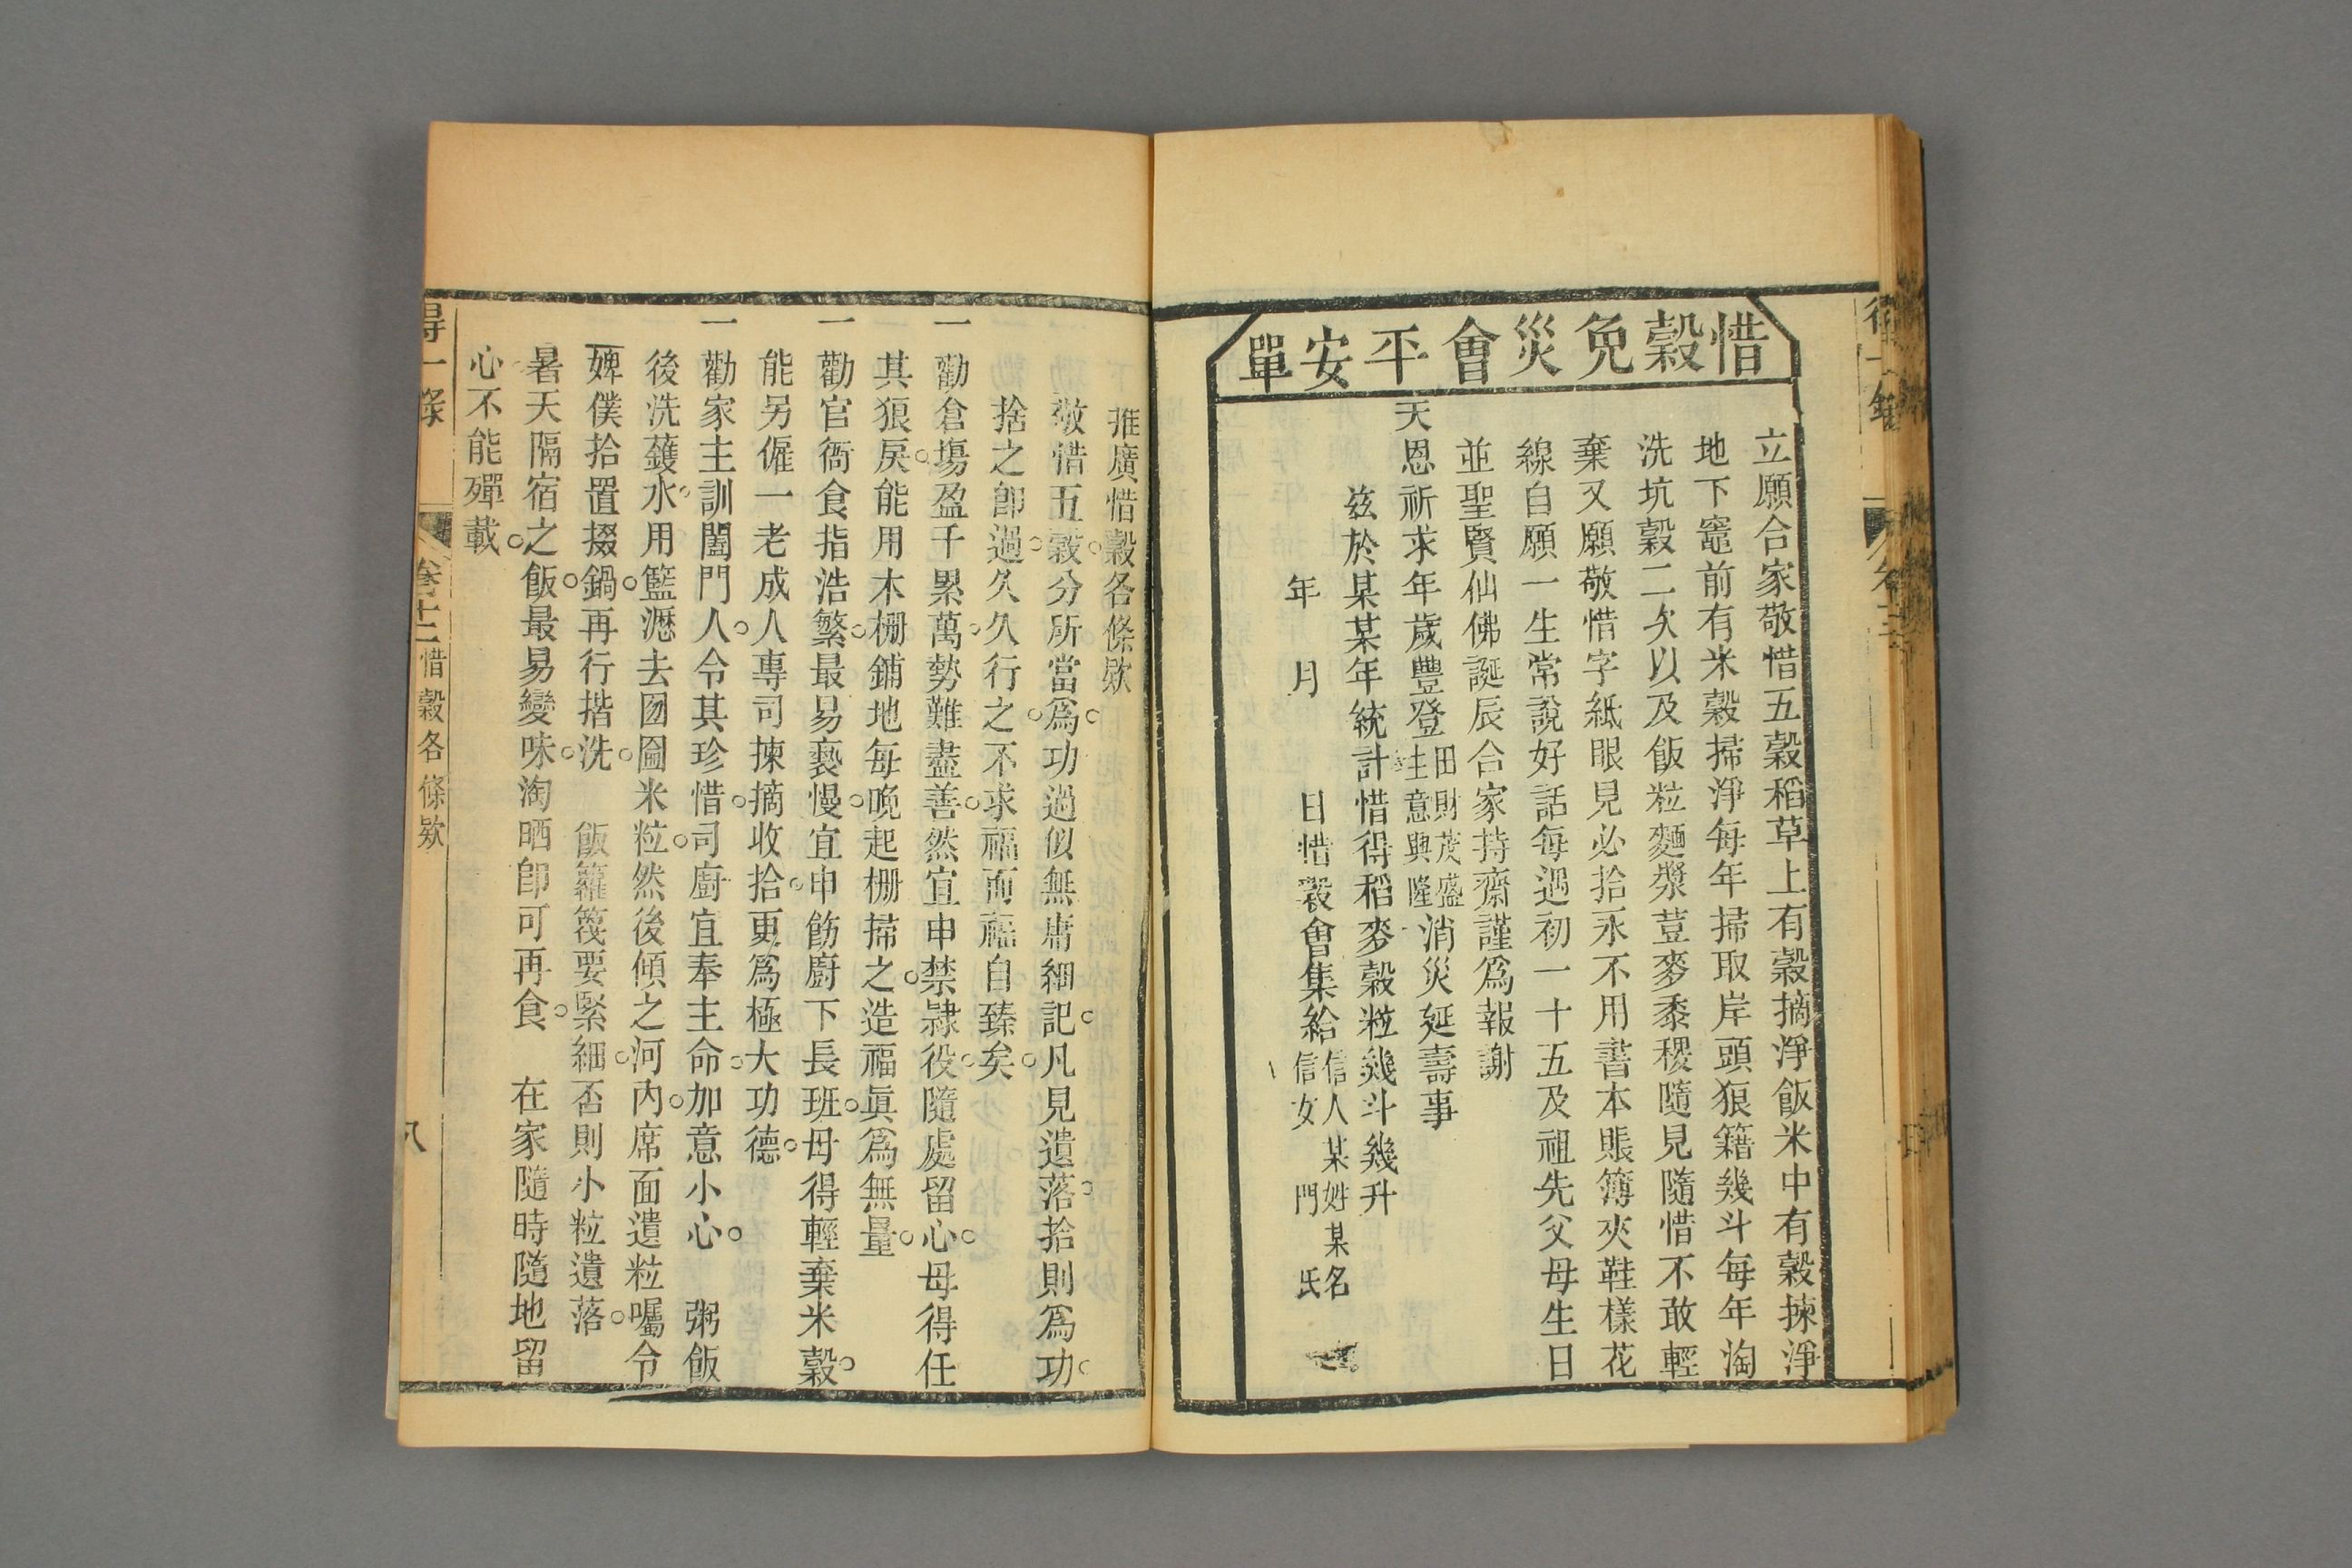 惜穀免災會平安單
立願合家敬惜五穀稻草上有穀摘淨飯米中有穀揀淨
地下竈前有米穀掃淨每年掃取岸頭狼籍幾斗每年淘
洗坑穀二次以及飯粒麵漿荳麥黍稷隨見隨惜不敢輕
棄又願敬惜字紙眼見必拾永不用書本賬簿夾鞋樣花
線自願一生常說好話每遇初一十五及祖先父母生日
並聖賢仙佛誕辰合家持齋謹爲報謝
天恩祈求年歲豐登田財茂盛生意興隆消災延壽事
兹於某某年統計惜得稻麥穀粒幾斗幾升
年 月 日惜穀會集給信人某姓某名信女 門 氏
推廣惜穀各條欵
敬惜五穀分所當爲功過似無庸細記凡見遺落拾則爲功
捨之卽過久久行之不求福而福自臻矣
一勸倉場盈千累萬勢難盡善然宜申禁隷役隨處留心毋得任
其狼戾能用木柵鋪地每晚起柵掃之造福眞爲無量
一勸官衙食指浩繁最易褻慢宜申飭廚下長班毋得輕棄米穀
能另僱一老成人專司揀摘收拾更爲極大功德
一勸家主訓閤門人令其珍惜司廚宜奉主命加意小心 粥飯
後洗鑊水用籃瀝去囫圇米粒然後傾之河內席面遺粒囑令
婢僕拾置掇鍋再行揩洗 飯籮筏要緊細否則小粒遺落
暑天隔宿之飯最易變味淘晒卽可再食 在家隨時隨地留
心不能殫載
得一錄 卷十二 惜穀各條欵 八